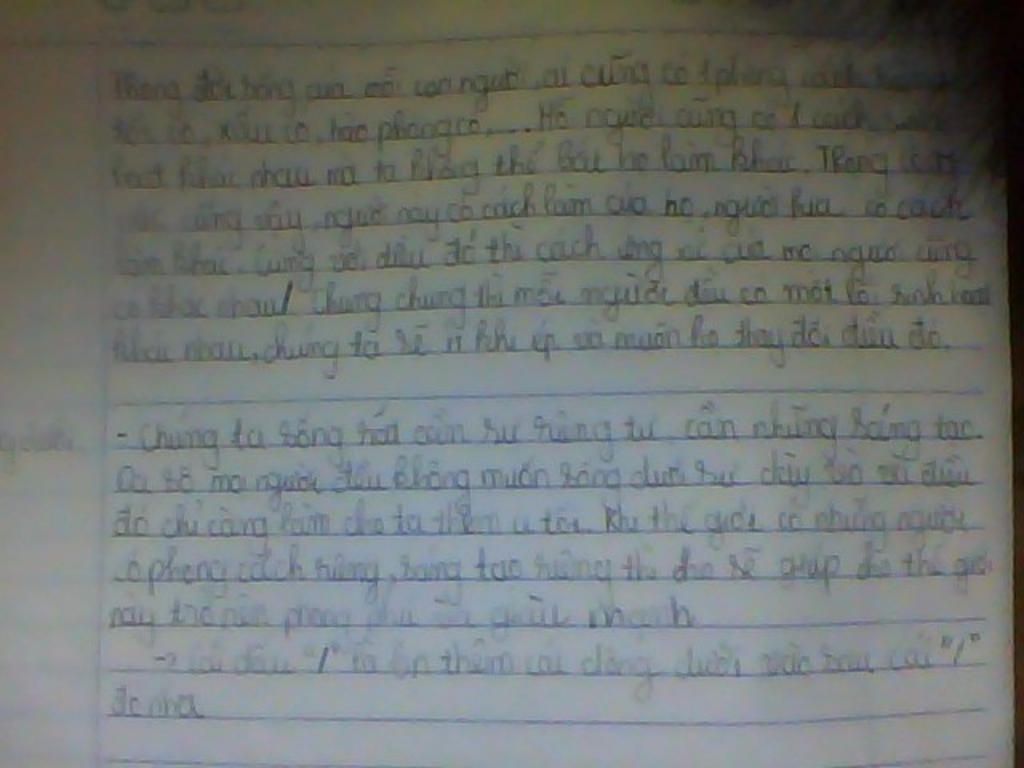 Trong đời sống của mỗi con người, ai cũng có 1 phong cách riêng
tốt có, xấu có, hào phóng có,.... Mỗi người cũng có 1 cách sinh
hoạt khác nhau mà ta không thể bắt họ làm khác. Trong công
việc cũng vậy, người này có cách làm của họ, người kia có cách
làm khác. Cùng với điều đó thì cách ứng xử của mọi người cũng
có khác nhau/ chung chung thì mỗi người đều có một lối sinh hoạt
khác nhau, chúng ta sẽ khi ép và muốn họ thay đổi điều đó.
- Chúng ta sống rất cần sự riêng tư, cần những sáng tạo.
Đa số mọi người đều không muốn sống dưới sự điều
đó chỉ càng làm cho ta thêm u tối. Khi thế giới có những người
có phong cách riêng, sáng tạo riêng thì sẽ giúp cho thế giới
này trở nên phong phú và giàu mạnh
-> Cái dấu "/" là thêm cái dòng dưới sau cái "/"
đó nha